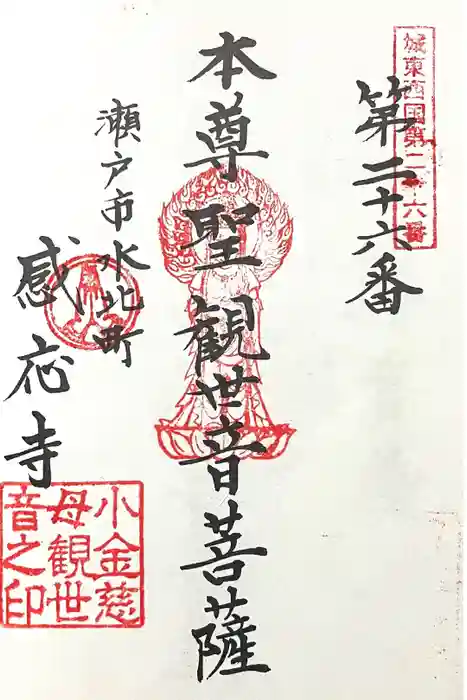 城東西国第二十六番
第二十六番
本尊聖観世音菩薩
瀬戸市水北町
感応寺
小金慈
母観世
音之印